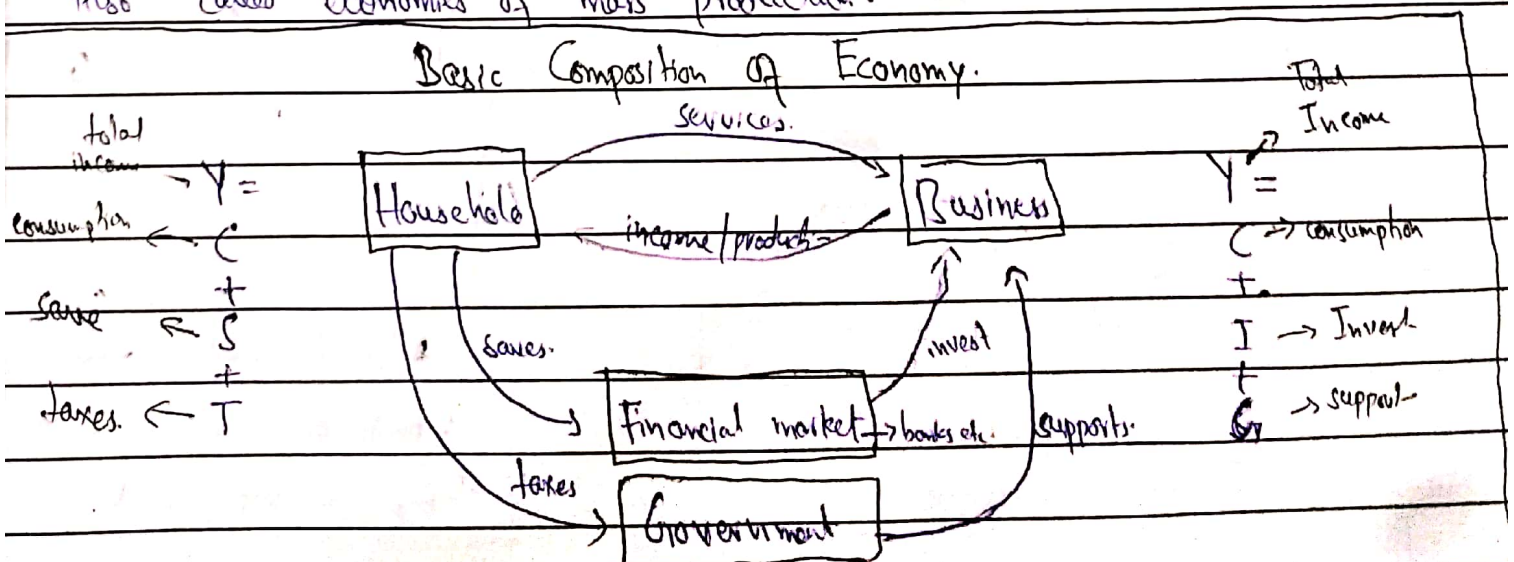 Also called economies of mass production.
Basic Composition of Economy.
total income → Y =
consumption ← C
+
save ← S
+
taxes. ← T
Household
services.
income/producti
Business
saves.
invest
Financial market → banks etc.
supports.
taxes
Government
Total Income
Y =
C → consumption
+
I → Invest
+
G → support